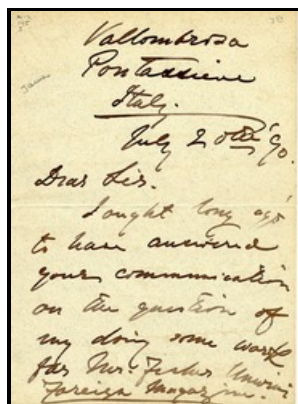 Vallombrosa
Pontassieve
Italy.
July 20th '90.
Dear Sir.
I ought long ago
to have answered
your communication
on the question of
my doing some work
for Mr. Fisher Unwin's
Foreign Magazine.
James